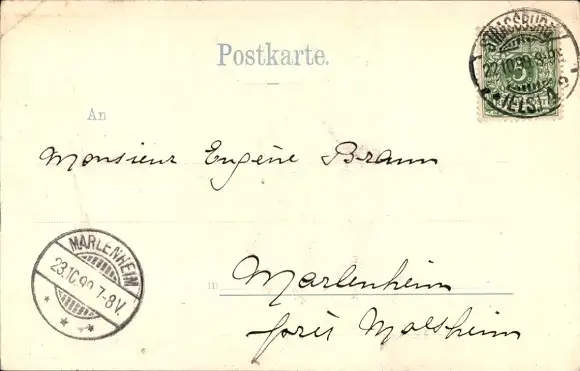 Postkarte.
STRASSBURG
22.10.99
(ELS) 4
5
An
Monsieur Eugène Braun
MARLENHEIM
23.10.99 7-8V.
in Marlenheim
près Molsheim